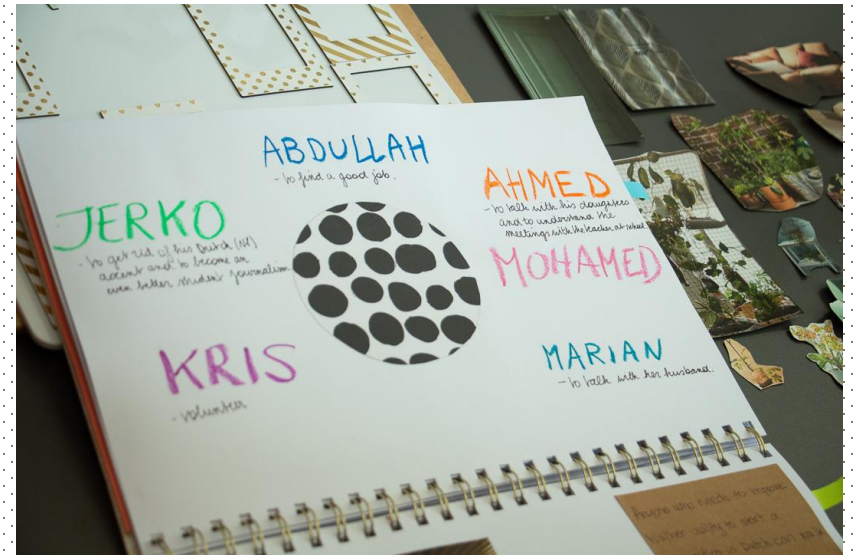 ABDULLAH
- to find a good job.
AHMED
- to talk with his daughters
and to understand the
meetings with the teacher at school.
JERKO
- to get rid of his Dutch (NL)
accent and to become an
even better student journalism
MOHAMED
KRIS
- volunteer
MARIAN
- to talk with her husband.
Anyone who needs to improve
his/her ability to
Dutch can